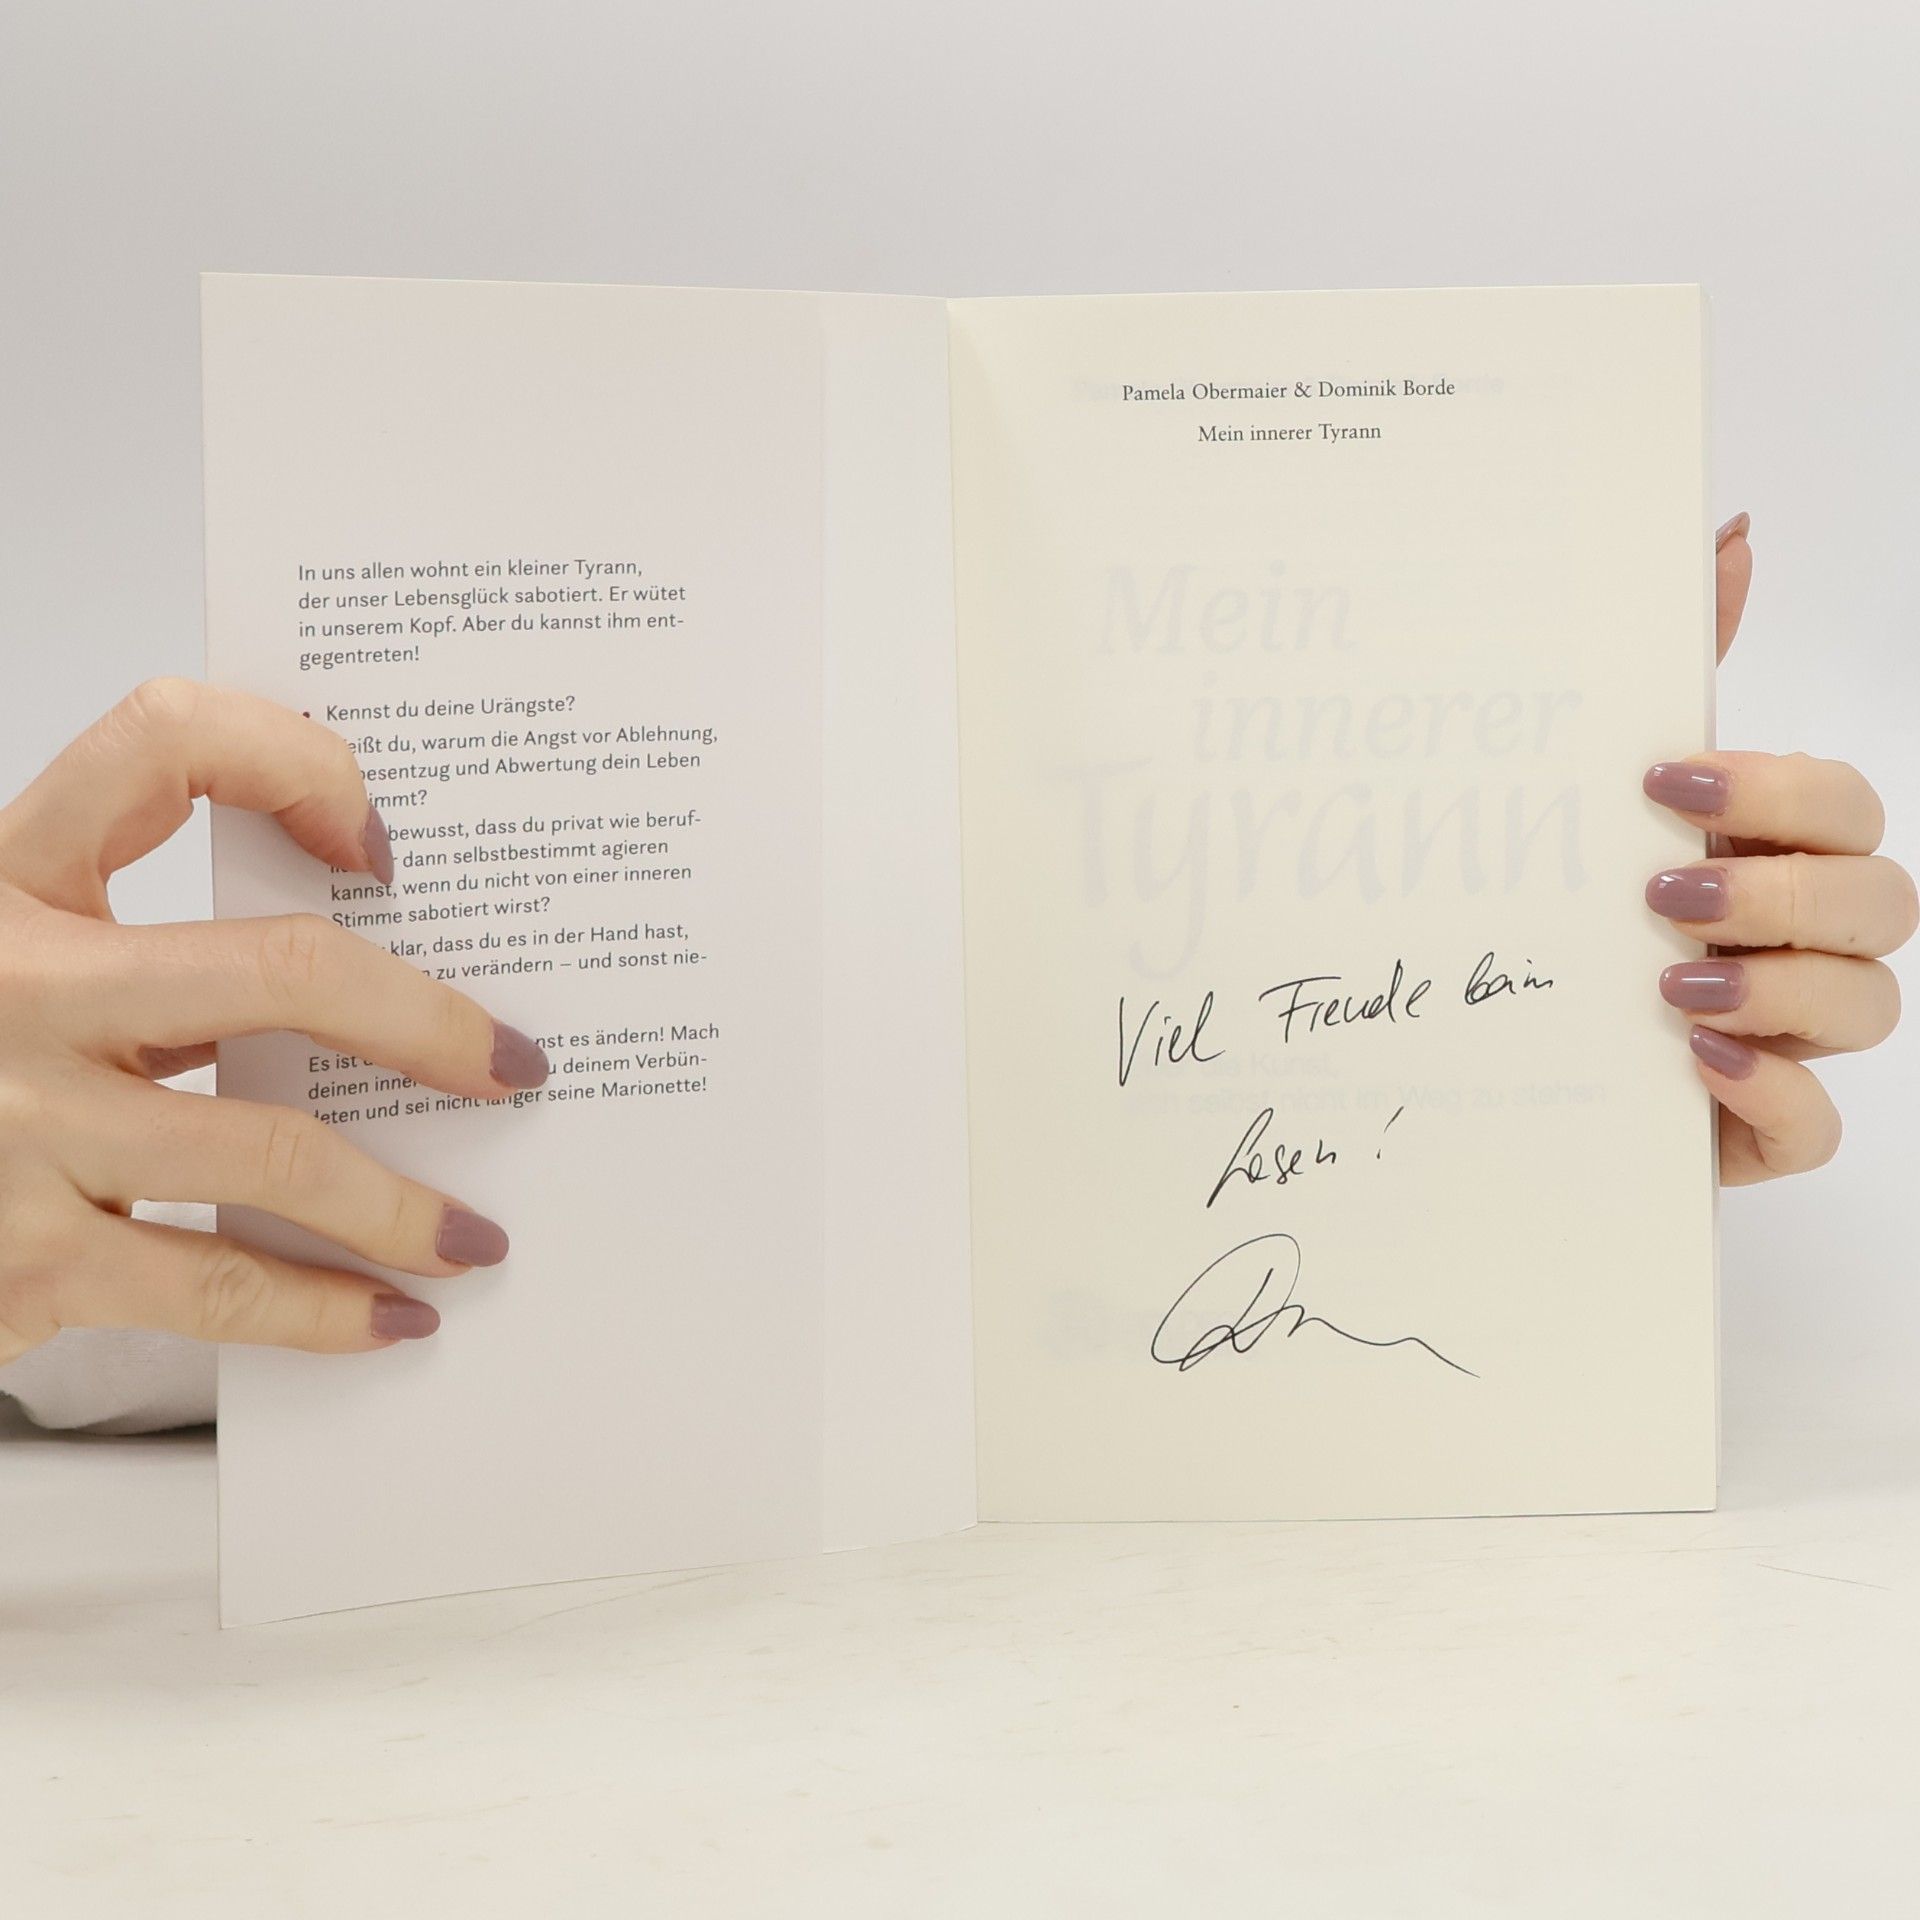 In uns allen wohnt ein kleiner Tyrann,
der unser Lebensglück sabotiert. Er wütet
in unserem Kopf. Aber du kannst ihm ent-
gegentreten!
• Kennst du deine Urängste?
eißt du, warum die Angst vor Ablehnung,
besentzug und Abwertung dein Leben
immt?
bewusst, dass du privat wie beruf-
dann selbstbestimmt agieren
kannst, wenn du nicht von einer inneren
Stimme sabotiert wirst?
klar, dass du es in der Hand hast,
zu verändern – und sonst nie-
Es ist nst es ändern! Mach
deinen inne u deinem Verbün-
deten und sei nicht länger seine Marionette!
Pamela Obermaier & Dominik Borde
Mein innerer Tyrann
Mein
innerer
Tyrann
die Kunst,
h selbst nicht im Weg zu stehen
Viel Freude beim
Lesen!